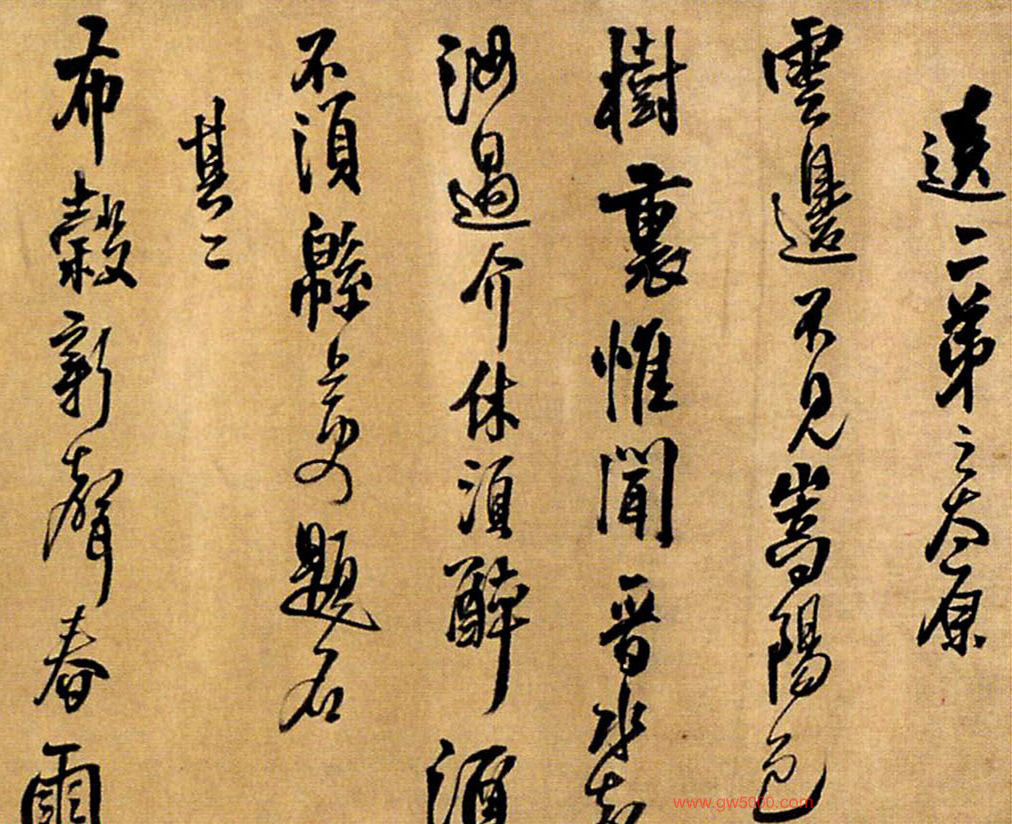 送二弟之太原
雲邊不見嵩陽色
樹裏惟聞晉水聲
汝過介休須醉酒
不須緜上更題名
其二
布穀新聲春雨
www.gw5000.com